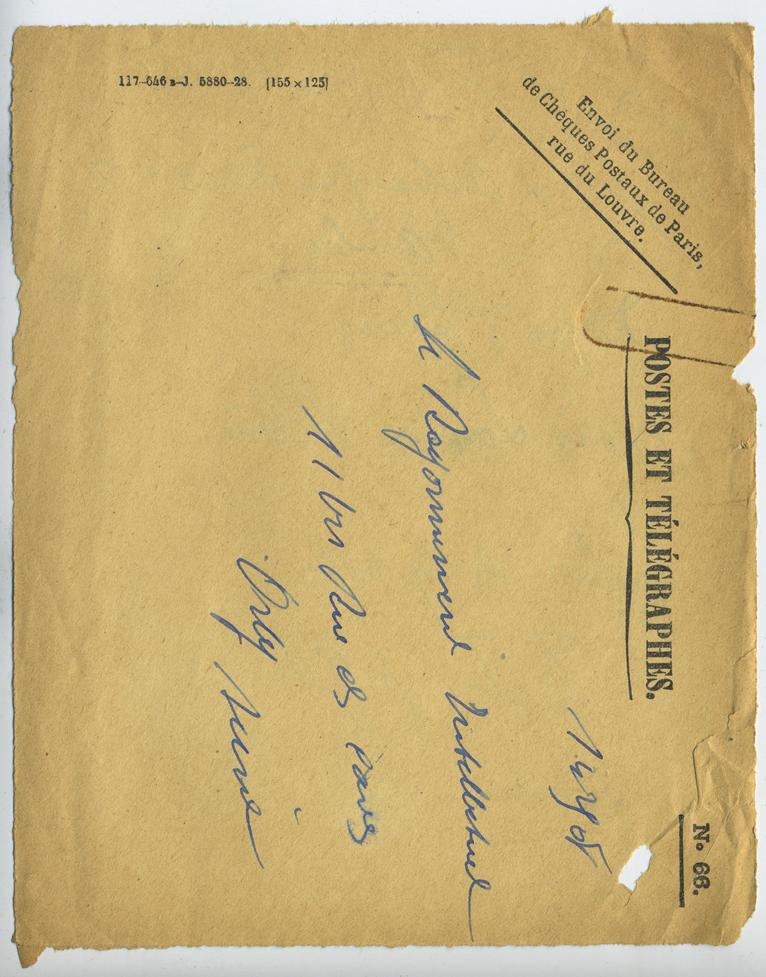 117-646 B-J. 5880-28. [155 × 125]
Envoi du Bureau
de Chèques Postaux de Paris,
rue du Louvre.
POSTES ET TÉLÉGRAPHES.
N° 66.
Le Rayonnement Intellectuel
11 bis Rue des
Orly Seine